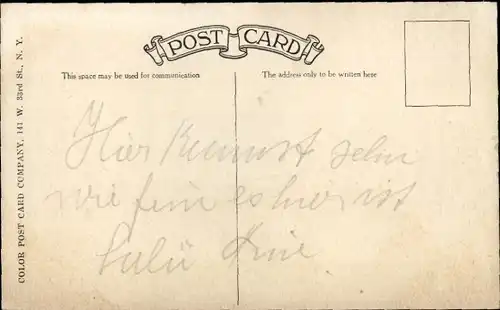 POST CARD
This space may be used for communication
The address only to be written here
COLOR POST CARD COMPANY, 141 W. 33rd St., N. Y.
Hier kannst sehn
wie fein es hier ist
Lulu